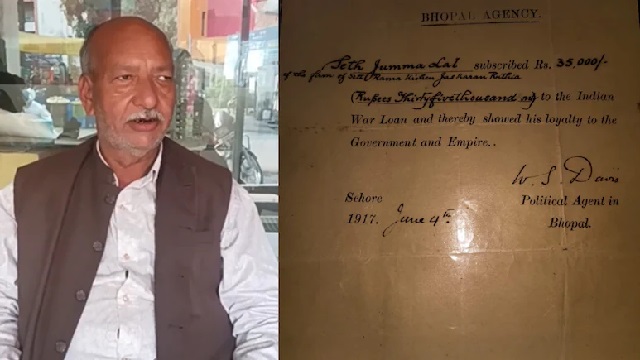 BHOPAL AGENCY.
Seth Jumma Lal subscribed Rs. 35,000/-
of the firm of Seth Rama Kishen Jaskaran Ruthia
(Rupees Thirtyfive thousand only) to the Indian
War Loan and thereby showed his loyalty to the
Government and Empire.
W S Davis
Sehore Political Agent in
1917. June 4th Bhopal.